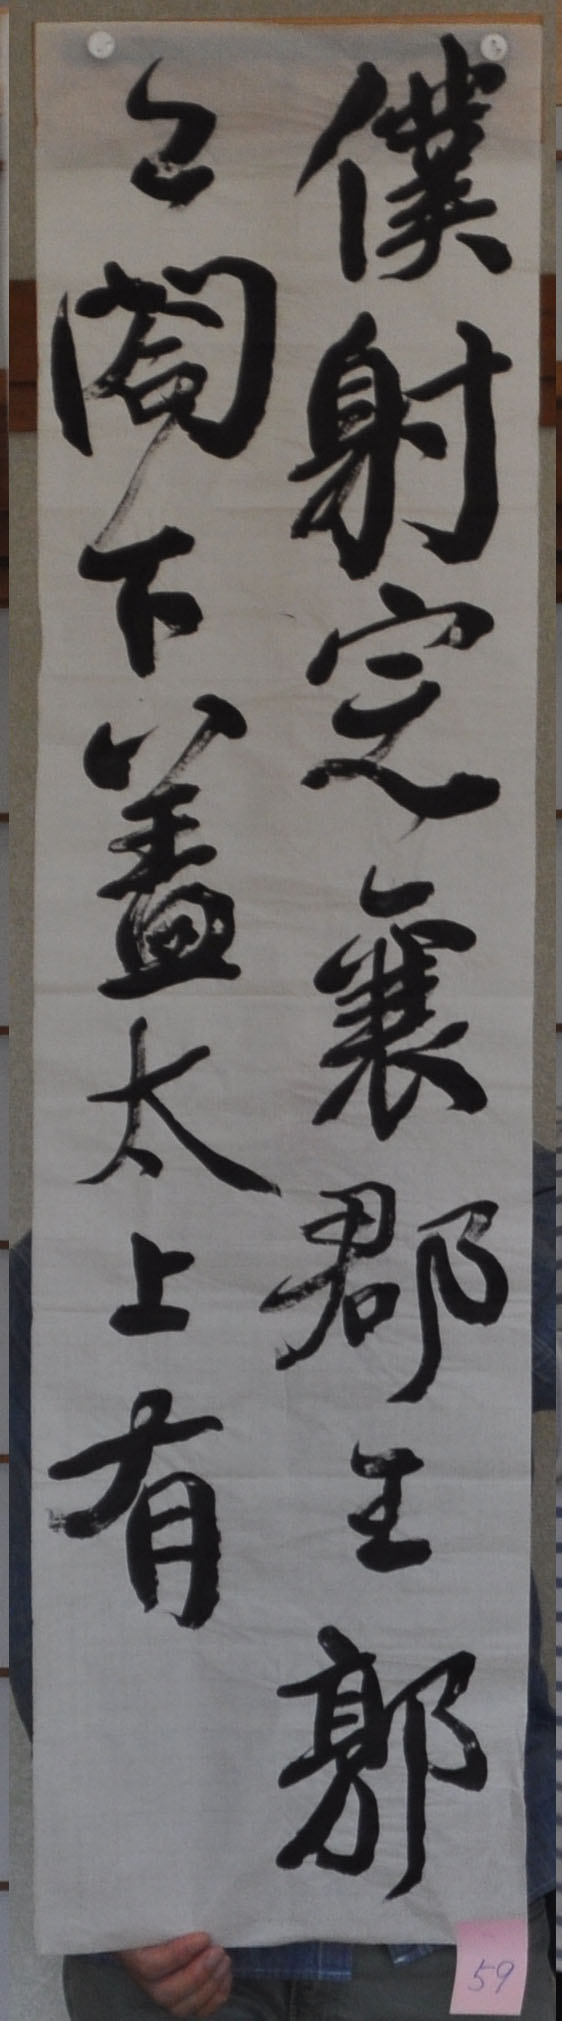 僕射定襄郡王郭
公閤下盖太上有
59